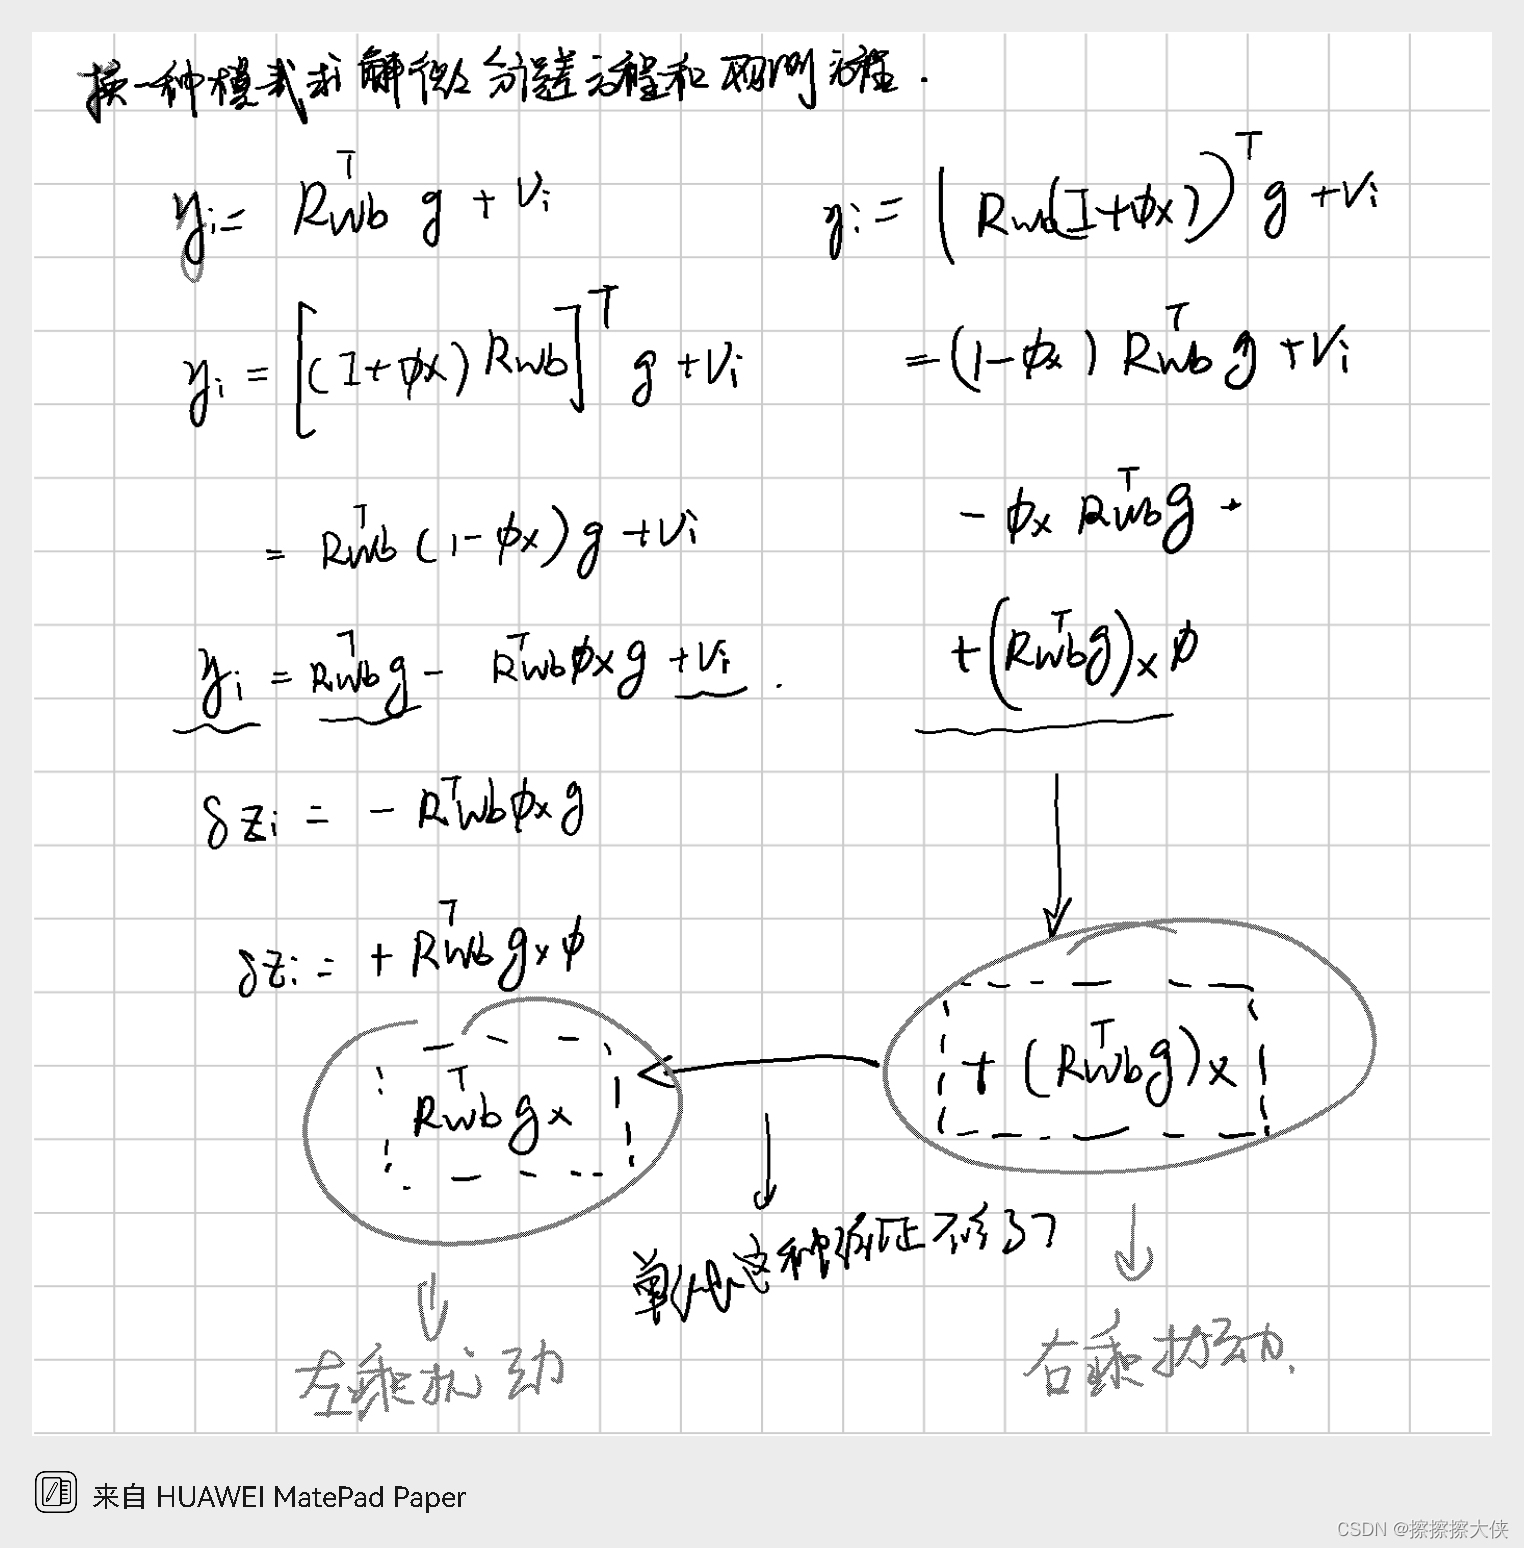 换一种模式求解微分误差方程和观测方程.
y_i = R_wb^T g + V_i
y_i = [(I+φ×) R_wb]^T g + V_i
= R_wb^T (1-φ×) g + V_i
y_i = R_wb^T g - R_wb^T φ× g + V_i .
δz_i = - R_wb^T φ× g
δz_i = + R_wb^T g× φ
R_wb^T g×
左乘扰动
y_i = (R_wb(I+φ×))^T g + V_i
= (1-φ×) R_wb^T g + V_i
- φ× R_wb^T g ·
+ (R_wb^T g)× φ
+ (R_wb^T g)×
这种 证不
右乘扰动.
来自 HUAWEI MatePad Paper
CSDN @擦擦擦大侠